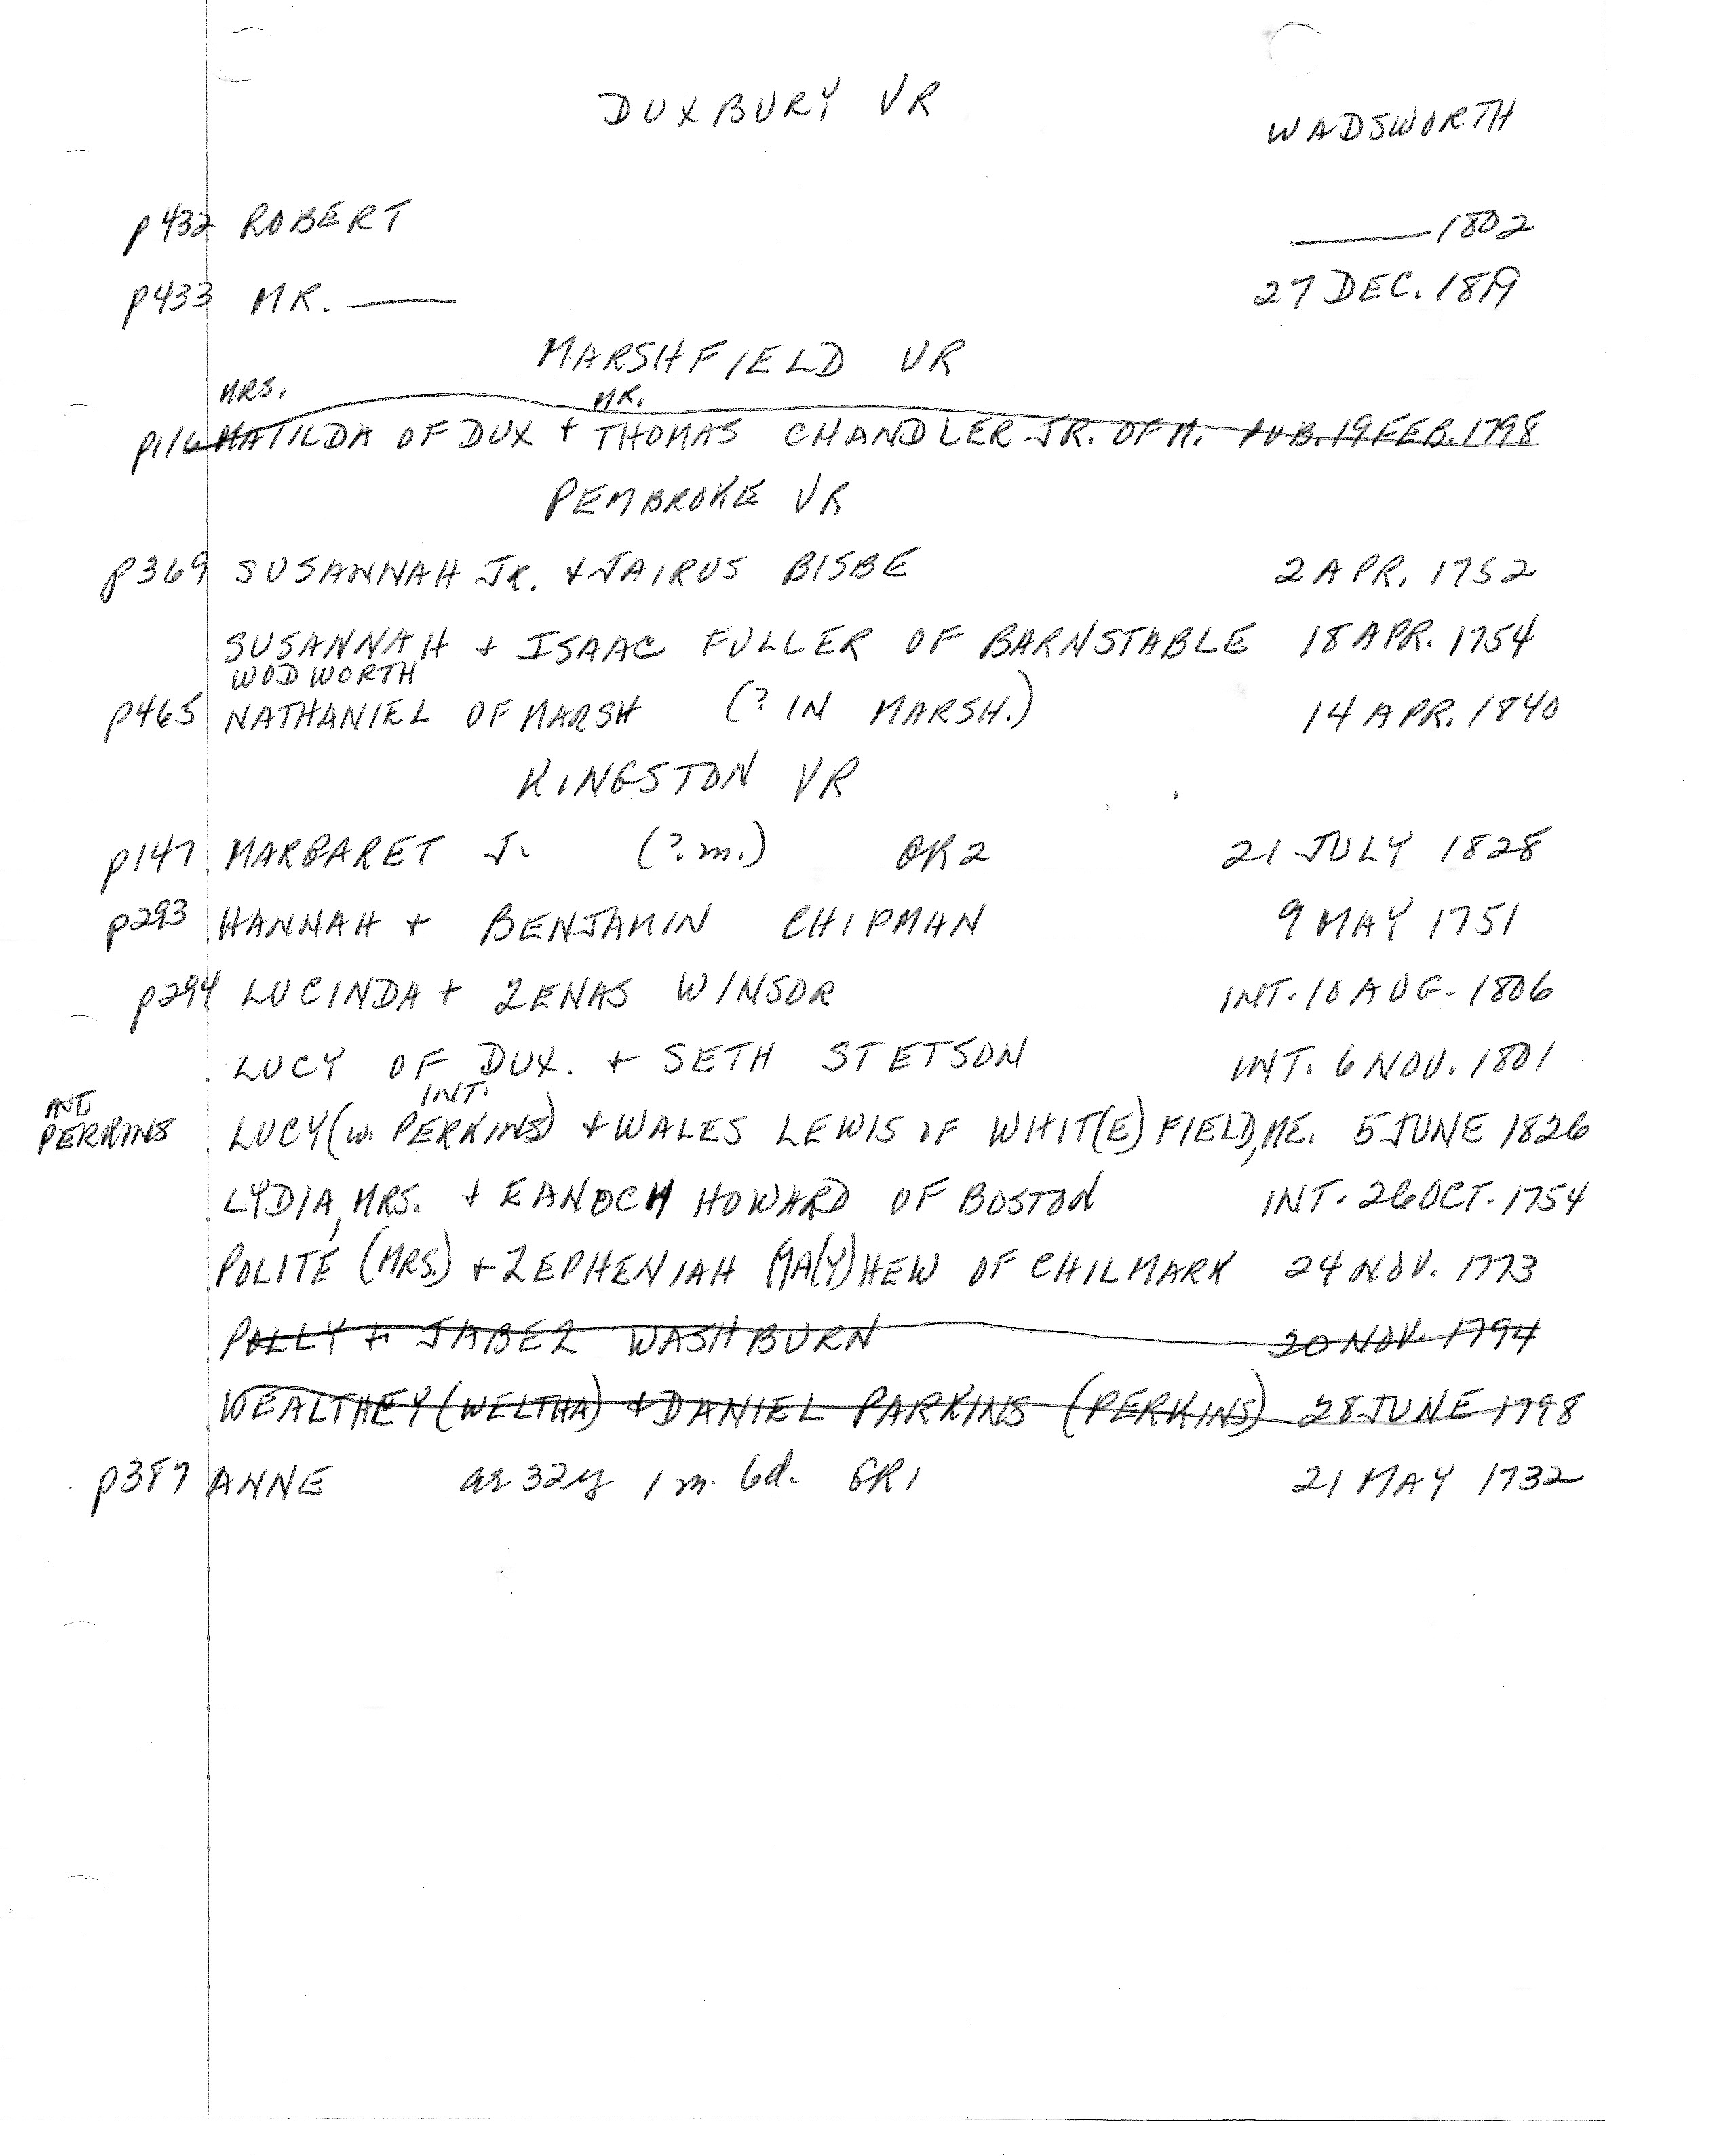 DUXBURY VR
WADSWORTH
p432 ROBERT ——— 1802
p433 MR. ——— 27 DEC. 1819
MARSHFIELD VR
MRS. MR.
p116 MATILDA OF DUX + THOMAS CHANDLER JR. OF M. PUB. 19 FEB. 1798
PEMBROKE VR
p369 SUSANNAH JR. + JAIRUS BISBE 2 APR. 1752
SUSANNAH + ISAAC FULLER OF BARNSTABLE 18 APR. 1754
WODWORTH
p465 NATHANIEL OF MARSH (? IN MARSH.) 14 APR. 1840
KINGSTON VR
p147 MARGARET J. (?.m.) GR2 21 JULY 1828
p293 HANNAH + BENJAMIN CHIPMAN 9 MAY 1751
p294 LUCINDA + ZENAS WINSOR INT. 10 AUG. 1806
LUCY OF DUX. + SETH STETSON INT. 6 NOV. 1801
INT. INT.
PERKINS LUCY (w. PERKINS) + WALES LEWIS OF WHIT(E)FIELD, ME. 5 JUNE 1826
LYDIA, MRS. + EANOCH HOWARD OF BOSTON INT. 26 OCT. 1754
POLITE (MRS.) + ZEPHENIAH MA(Y)HEW OF CHILMARK 24 NOV. 1773
POLLY + JABEZ WASHBURN 20 NOV. 1794
WEALTHEY (WELTHA) + DANIEL PARKINS (PERKINS) 28 JUNE 1798
p387 ANNE ae 32y 1 m. 6d. GR1 21 MAY 1732